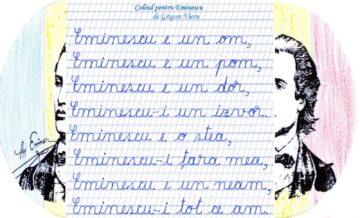 Colind pentru Eminescu
de Grigore Vieru
Eminescu e un om,
Eminescu e un pom,
Eminescu e un dor,
Eminescu-i un izvor.
Eminescu e o stea,
Eminescu-i țara mea,
Eminescu e un neam,
Eminescu-i tot ce am.